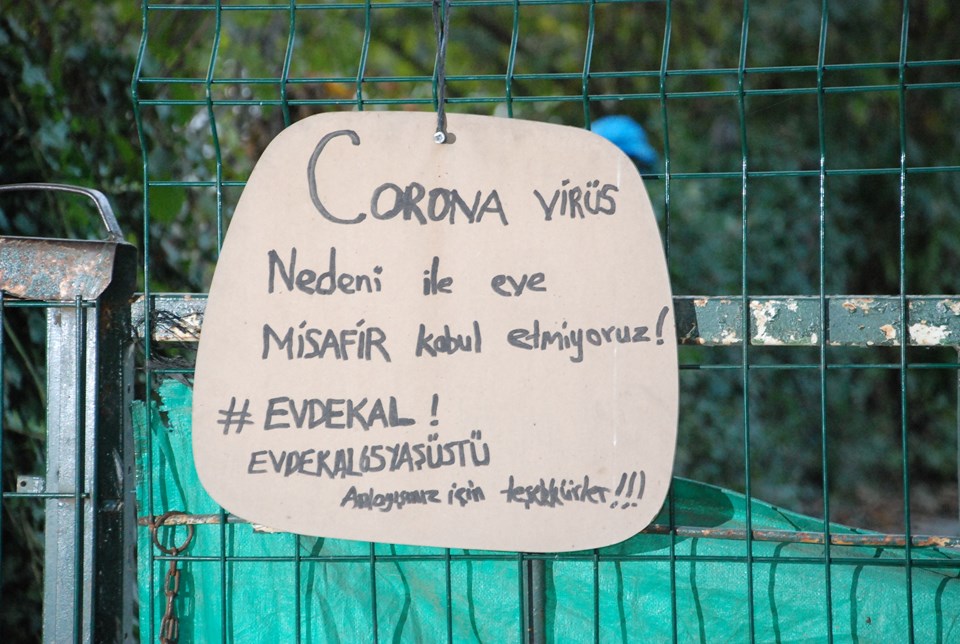 CORONA VİRÜS
Nedeni ile eve
MİSAFİR kabul etmiyoruz!
#EVDEKAL!
EVDEKAL65YAŞÜSTÜ
Anlayışınız için teşekkürler!!!